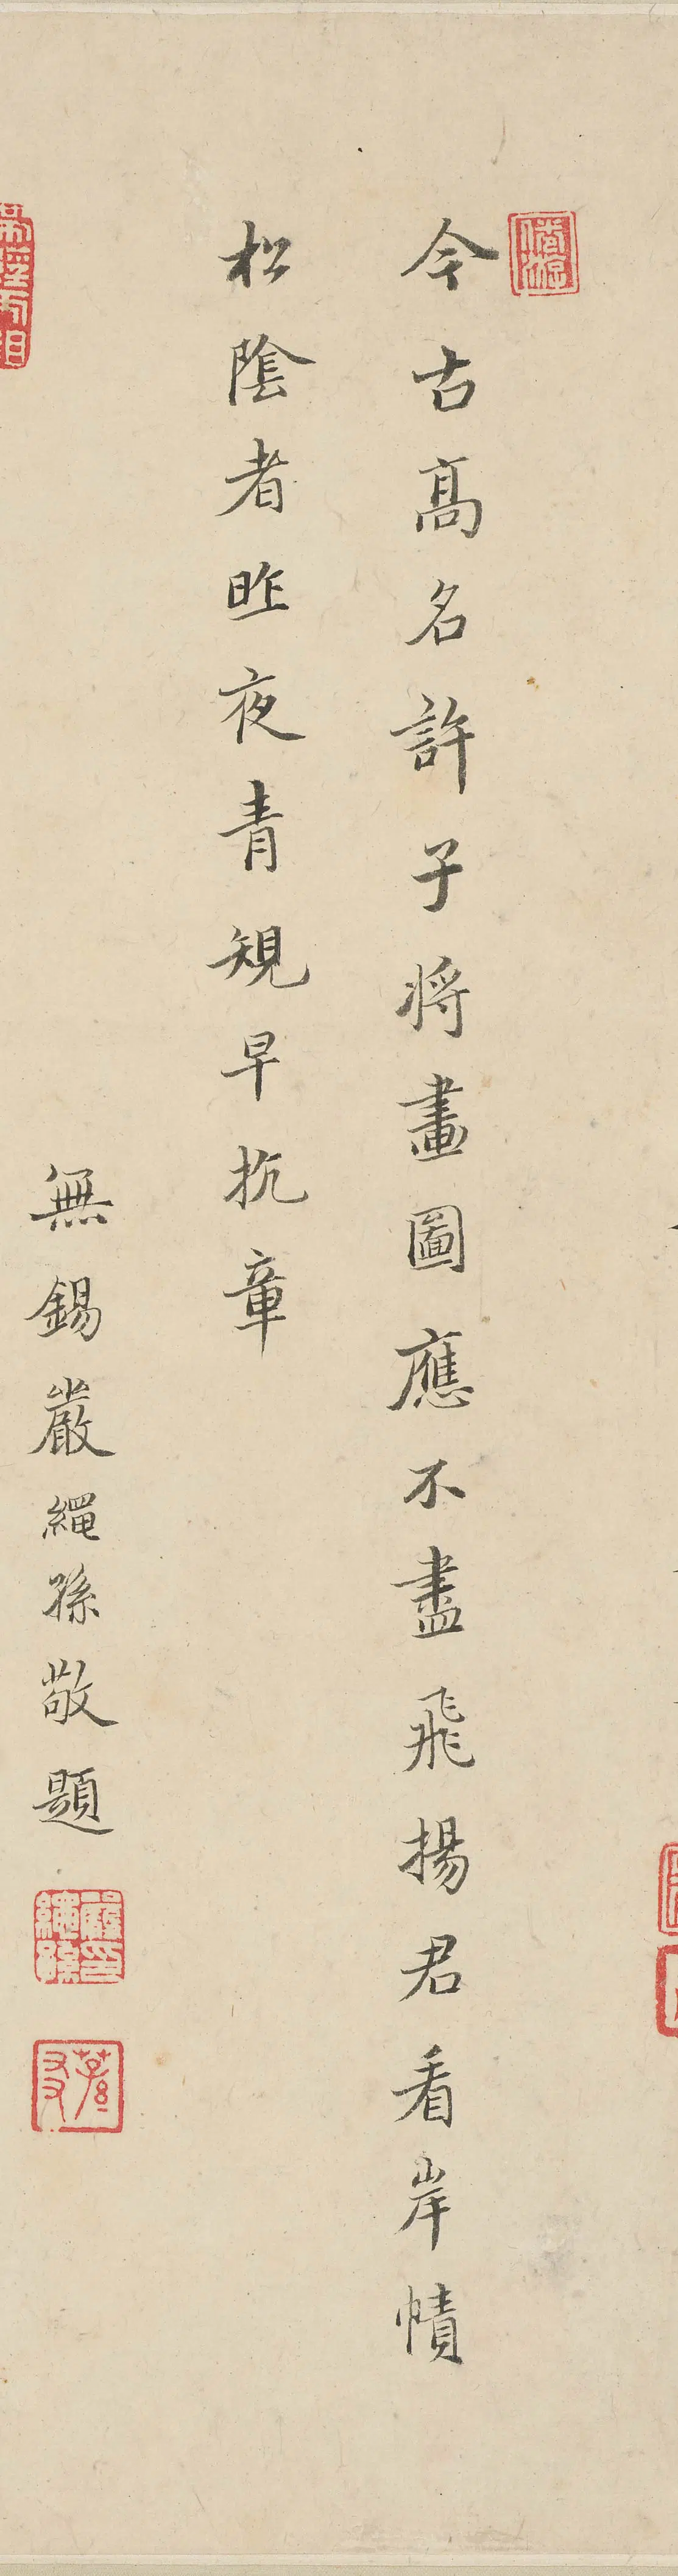 今古高名許子將畫圖應不盡飛揚君看岸幘
松陰者昨夜青規早抗章
無錫嚴繩孫敬題
嚴繩孫印
蓀友